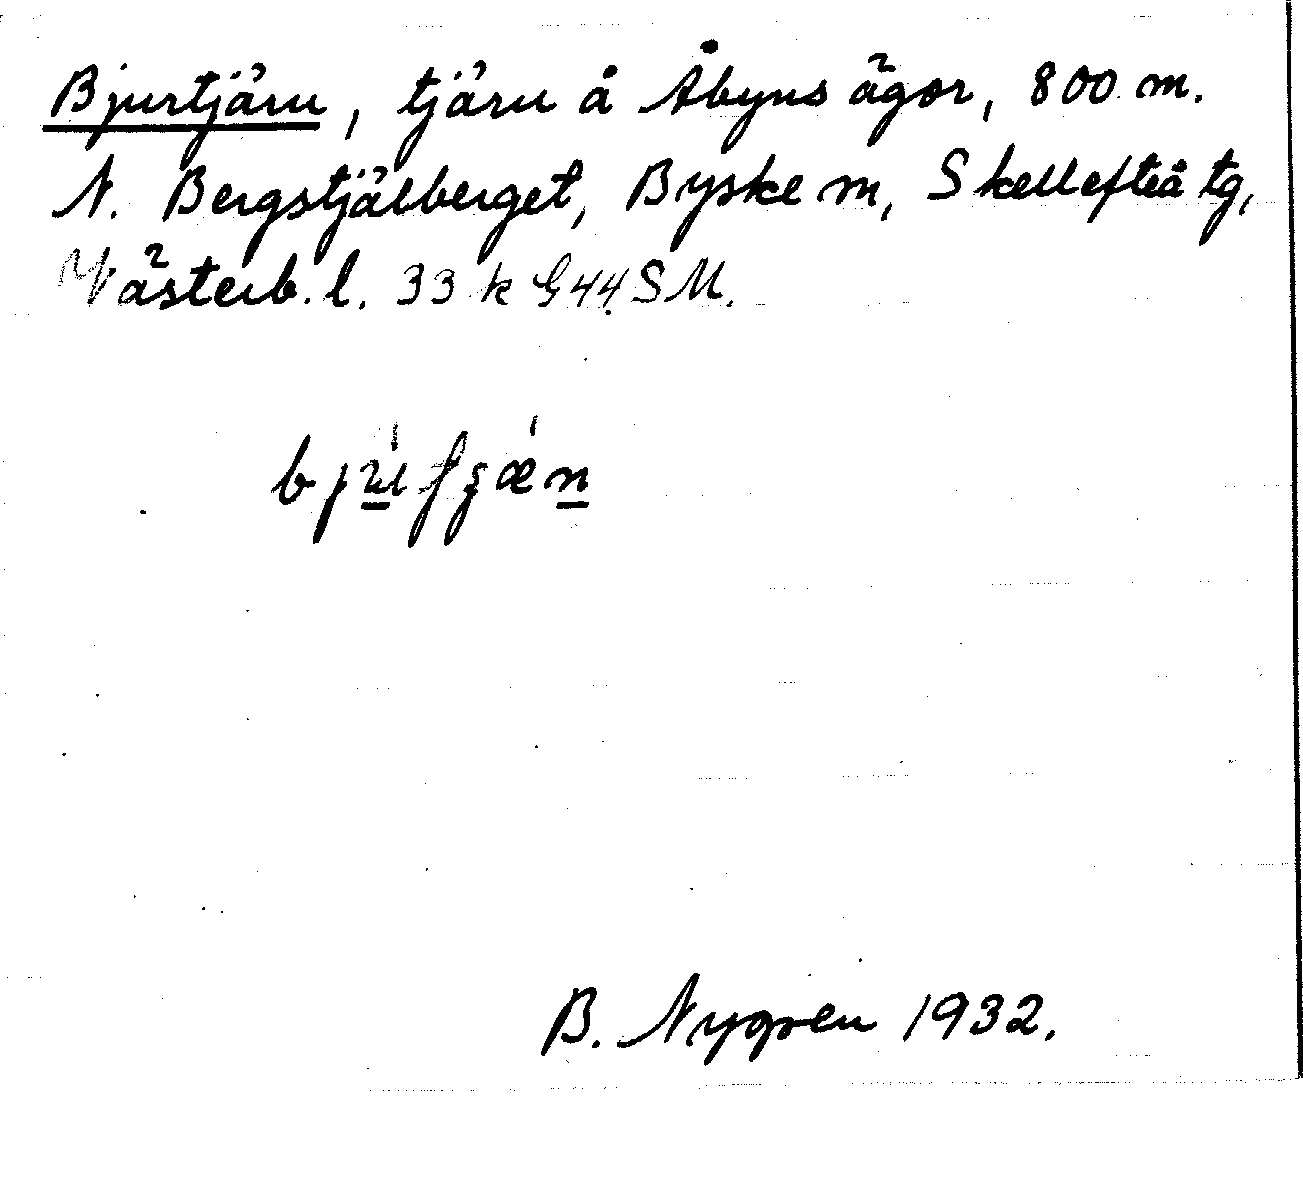 Bjurtjärn, tjärn å Åbyns ägor, 800 m.
N. Bergstjälberget, Byske m, Skellefteå tg,
Västerb. l. 33 k G 44 SM.
B. Nygren 1932.